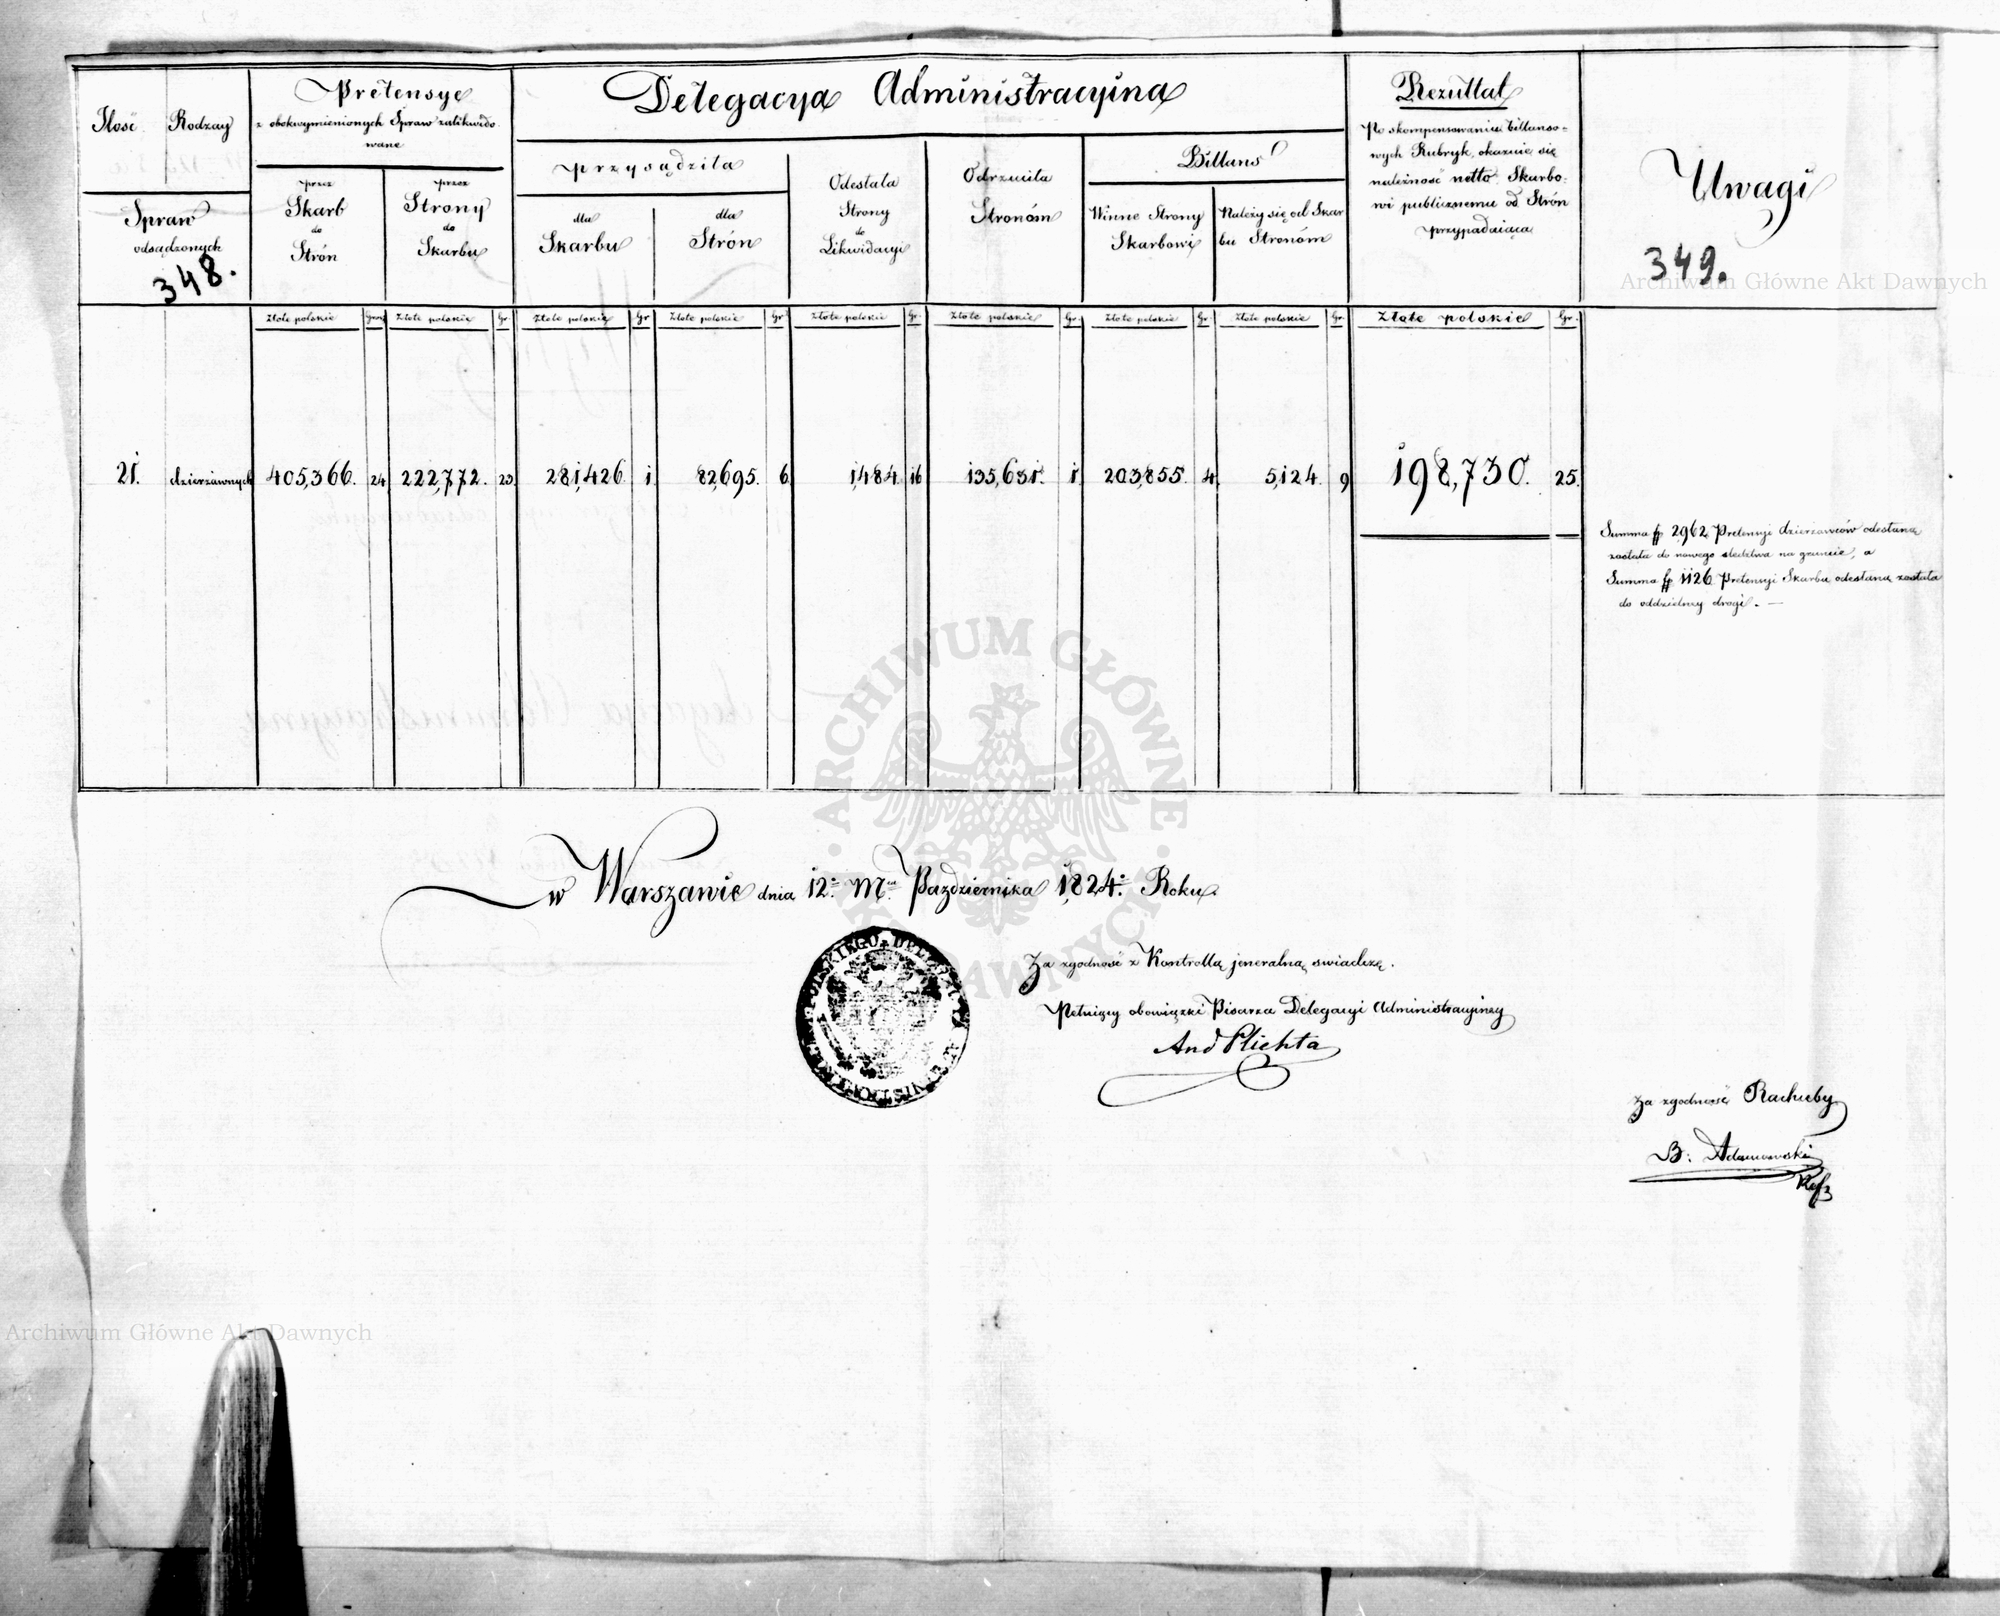 Ilość Rodzay
Spraw
odsądzonych
348.
Pretensye
z obokwymienionych Spraw zalikwido-
wane
przez
Skarb
do
Strón
przez
Strony
do
Skarbu
Delegacya Administracyina
przysądziła
dla
Skarbu
dla
Strón
Odesłała
Strony
do
Likwidacyi
Odrzuciła
Stronóm
Billans
Winne Strony
Skarbowi
Należy się od Skar
bu Stronóm
Rezultat
Po skompensowaniu billanso-
wych Rubryk, okazuie się
należność netto Skarbo-
wi publicznemu od Strón
przypadaiąca
Uwagi
349.
Archiwum Główne Akt Dawnych
Złote polskie Grosz Złote polskie Gr Złote polskie Gr Złote polskie Gr Złote polskie Gr. Złote polskie Gr. Złote polskie Gr. Złote polskie Gr. Złote polskie Gr.
21. dzierżawnych 405,366. 24 222,772. 23. 281,426 1. 82,695. 6. 1,484. 16 135,631. 1. 203,855. 4. 5,124. 9 198,730. 25.
Summa fp 2962 Pretensyi dzierżawców odesłaną
została do nowego śledztwa na gruncie, a
Summa fp 1126 Pretensyi Skarbu odesłaną została
do oddzielney drogi. —
ARCHIWUM GŁÓWNE AKT DAWNYCH
w Warszawie dnia 12. Mca Października 1,824. Roku.
Za zgodność z Kontrollą jeneralną swiadczę.
Pełniący obowiązki Pisarza Delegacyi Administracyiney
And Plichta
Za zgodność Rachuby
B. Adamowski
Archiwum Główne Akt Dawnych